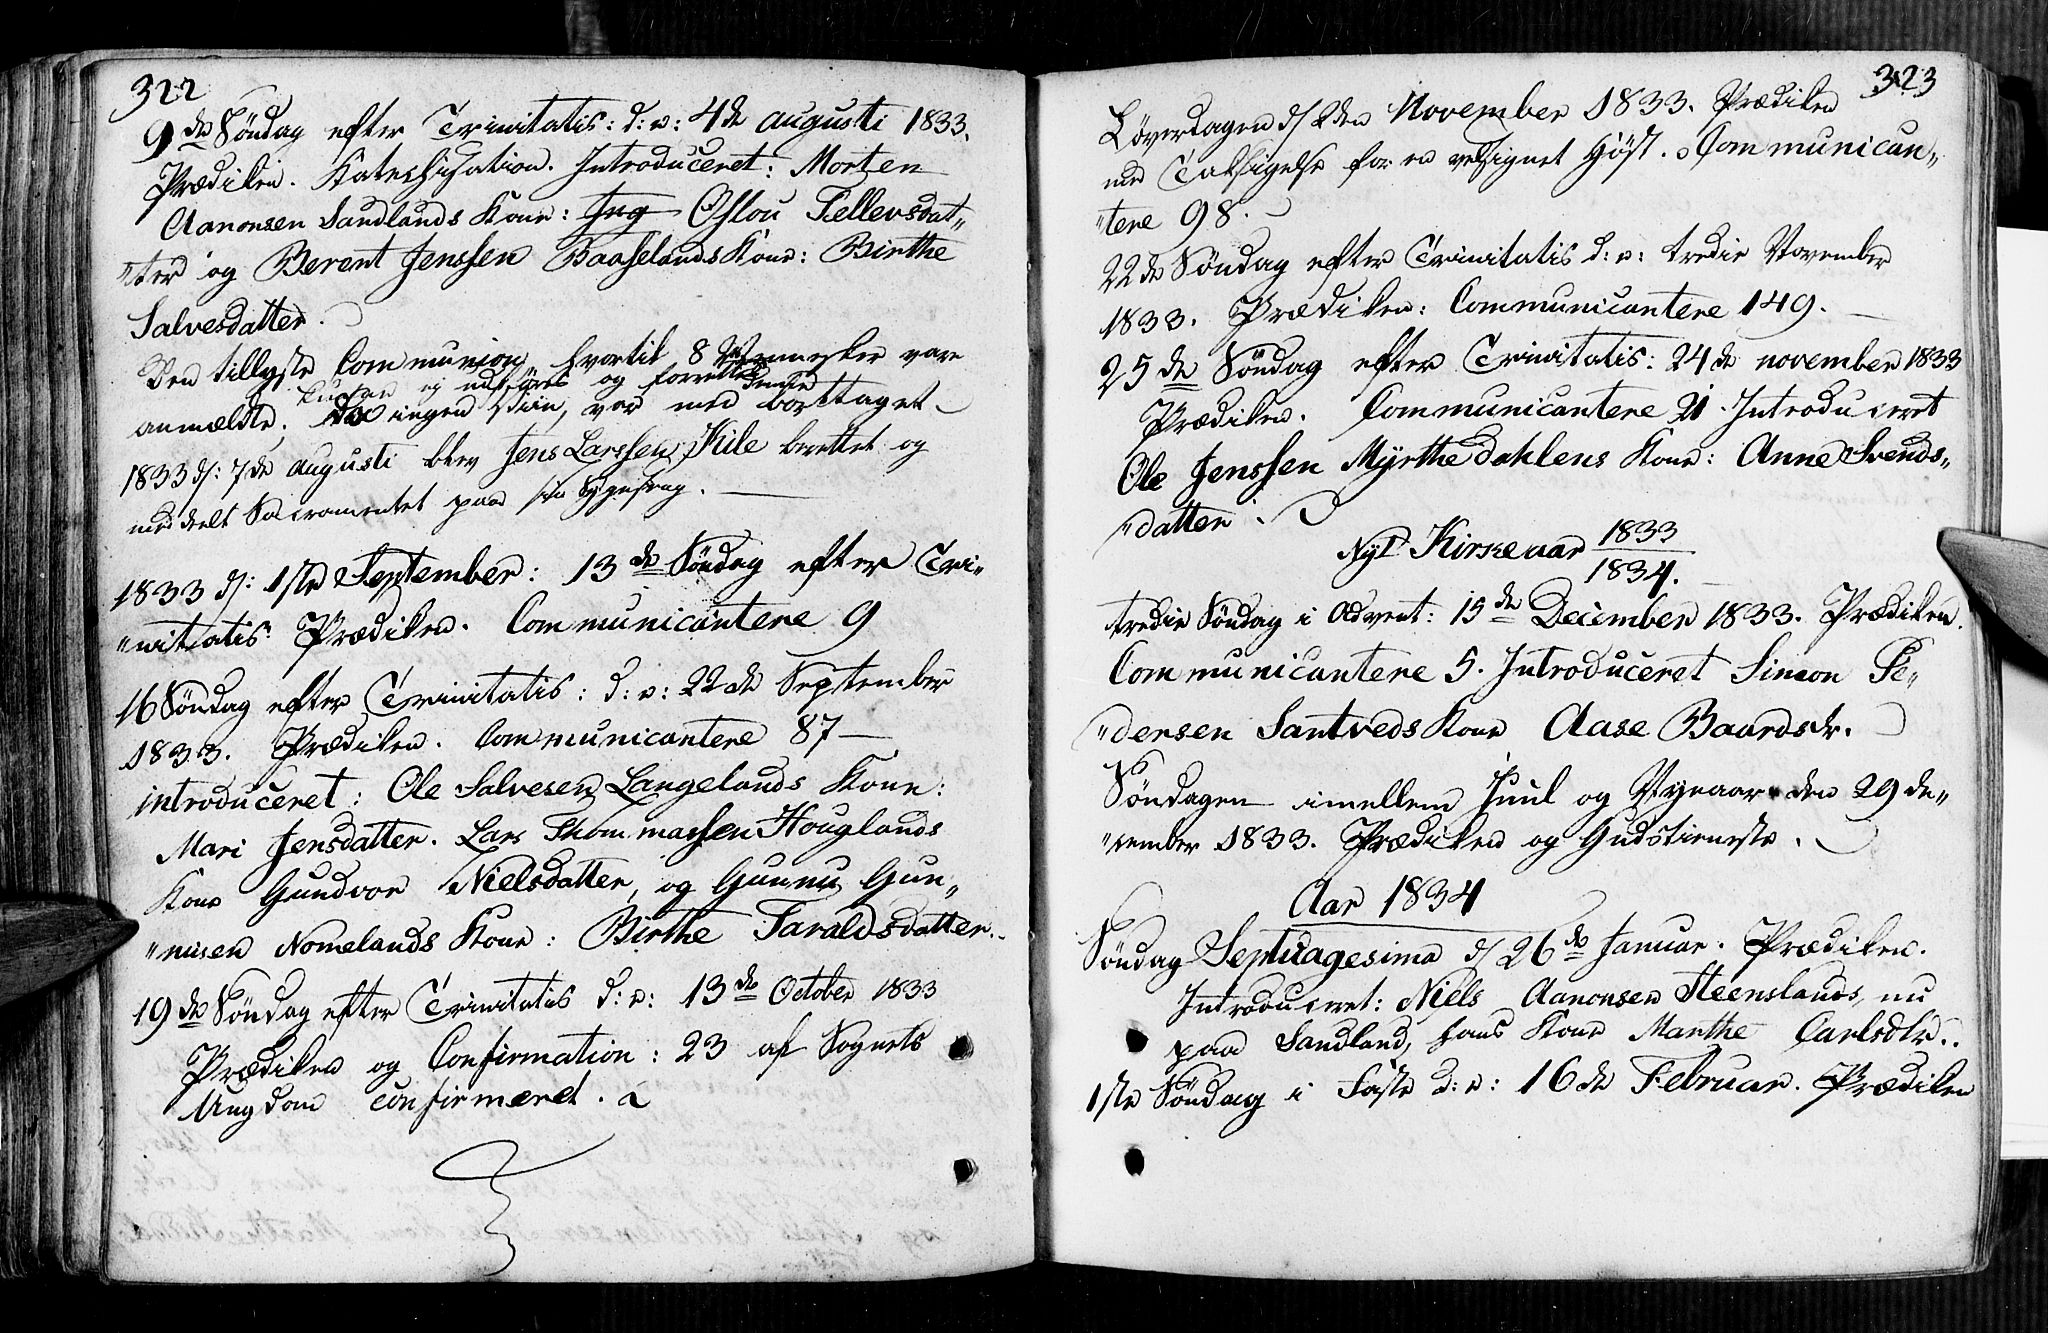 322
9de Söndag efter Trinitatis: d: e: 4de augusti 1833.
Prædiken. Katechisation. Introduceret: Morten
Aanonsen Sandlands Kone: Oslou Tellevsdat„
„ter og Berent Jenssen Baaselands Kone: Birthe
Salvesdatter.
Den tillyste Communion, hvortil 8 Mennesker vare
kunde ej udföres og forrettes
anmældte, da ingen Viin, var med borttaget
1833 d: 7de augusti blev Jens Larssen Kile berettet og
meddeelt Sacramentet paa sin Sygeseng.
1833 d: 1ste September: 13de Söndag efter Tri„
„nitatis Prædiken. Communicantere 9
16 Söndag efter Trinitatis: d: e: 22de September
1833. Prædiken. Communicantere 87
introduceret: Ole Salvesen Langelands Kone:
Mari Jensdatter. Lars Thommassen Houglands
Kone Gundvor Nielsdatter, og Gunnu Gun„
„nusen Nomelands Kone: Birthe Taraldsdatter.
19de Söndag efter Trinitatis d: e: 13de October 1833
Prædiken og Confirmation: 23 af Sognets
Ungdom confirmeret.
323
Löverdagen d/ 2den November 1833. Prædiken
med Taksigelse for en velsignet Höst. Communican„
„tere 98.
22de Söndag efter Trinitatis d: e: tredie November
1833. Prædiken: Communicantere 149.
25de Söndag efter Trinitatis: 24de november 1833
Prædiken. Communicantere 21. Introduceret
Ole Jenssen Myrthedahlens Kone: Anne Svends„
„datter.
Nyt Kirkeaar 1833
1834.
tredie Söndag i Advent: 15de December 1833. Prædiken.
Communicantere 5. Introduceret Simon Pe„
„dersen Santveds Kone Aase Baardsdr.
Söndagen imellem Juul og Nyeaar den 29 de„
„cember 1833. Prædiken og Gudstieneste.
Aar 1834
Söndag Septuagesima d/ 26de Januar. Prædiken.
Introduceret: Niels Aanonsen Steenslands, nu
paa Sandland, hans Kone Marthe Carlsdtr..
1ste Söndag i Faste d: e: 16de Februar. Prædiken